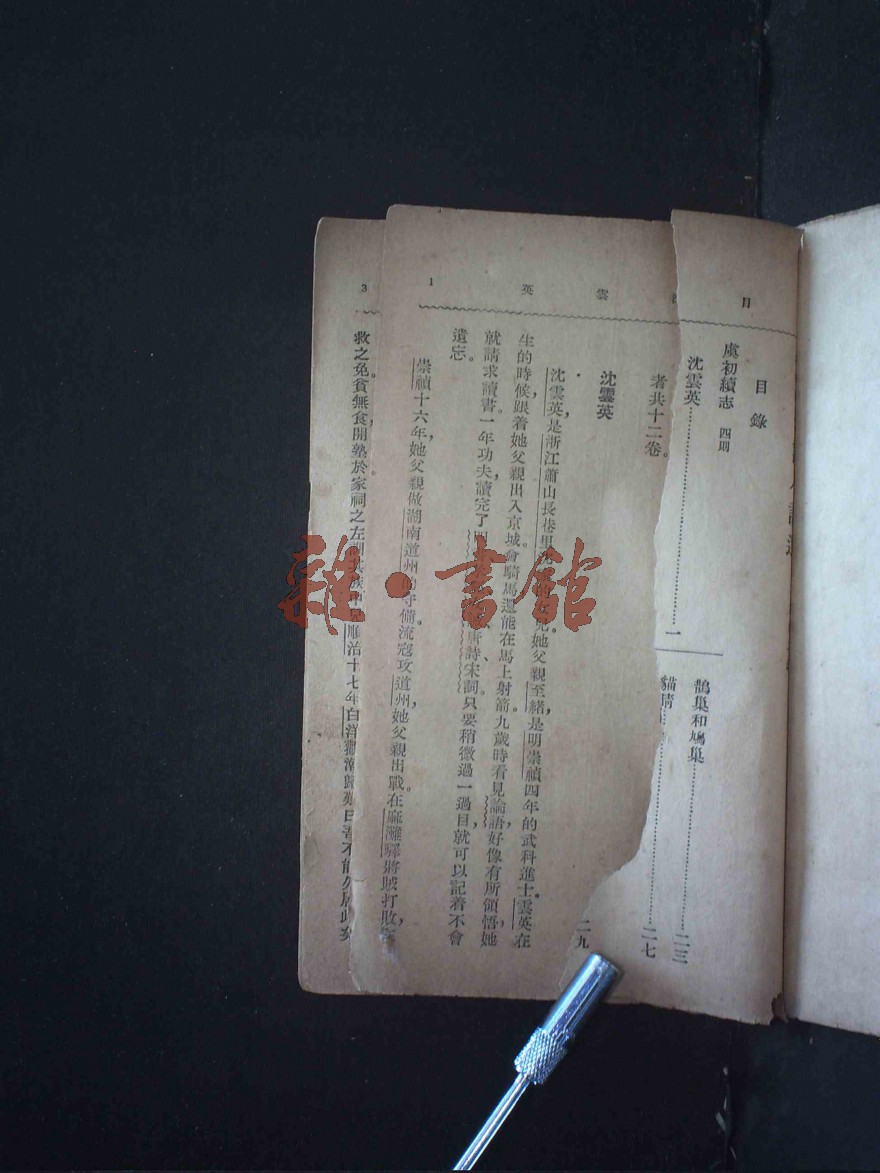 目
目錄
虞初續志 四則
沈雲英……一
鵲巢和鳩巢……二三
貓睛……二七
二九
英 雲 1
者共十二卷。
沈雲英
沈雲英,是浙江蕭山長巷里 她父親至緒,是明崇禎四年的武科進士。雲英在
生的時候,跟着她父親出入京城。會騎馬,還能在馬上射箭。九歲時看見論語,好像有所領悟,她
就請求讀書。一年功夫,讀完了 唐詩、宋詞。只要稍微過一過目,就可以記着不會
遺忘。
崇禎十六年,她父親做湖南道州的守備。流寇攻道州,她父親出戰。在麻灘驛將賊打敗,
3
救之免。貧無食,開塾於家祠之左,訓其族 順治十七年,白洋
雜·書館